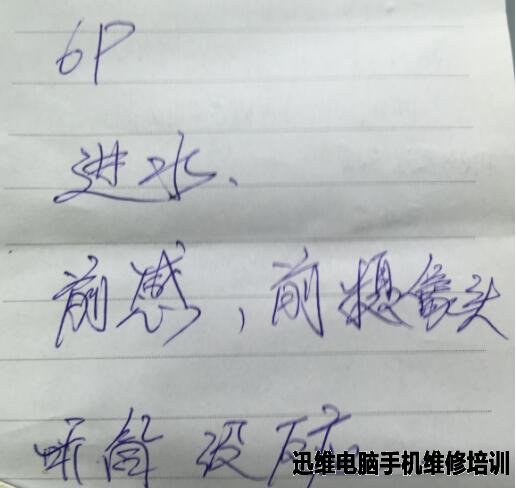 6P
进水、
前感，前摄像头
听筒没应。
迅维电脑手机维修培训